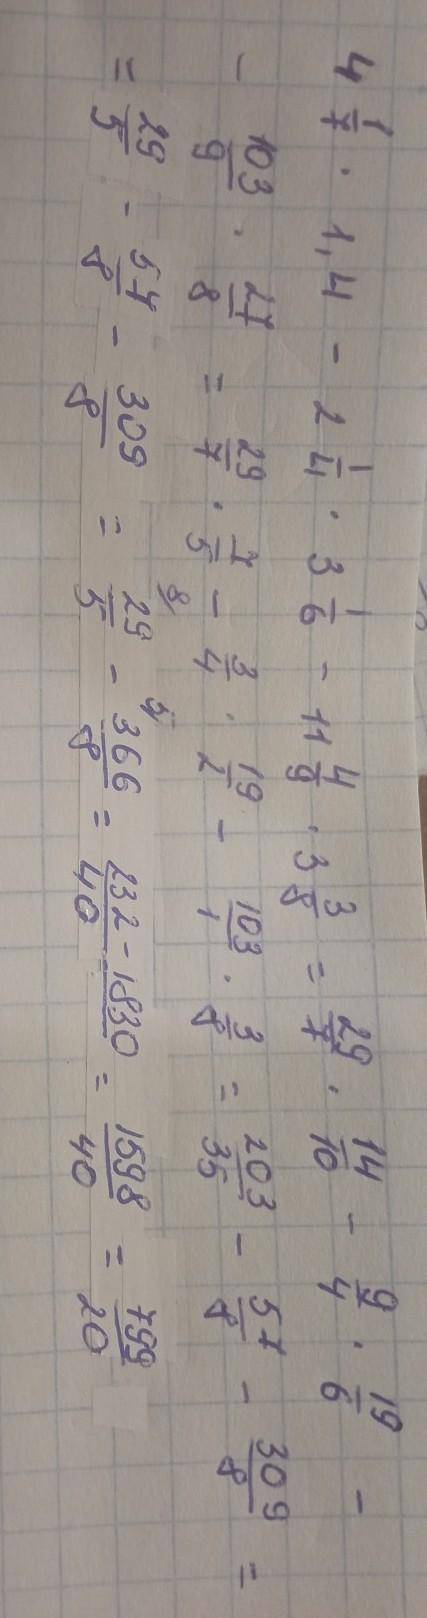 4 1/7 · 1,4 - 2 1/4 · 3 1/6 - 11 4/9 · 3 3/8 = 29/7 · 14/10 - 9/4 · 19/6 -
- 103/9 · 27/8 = 29/7 · 7/5 - 3/4 · 19/2 - 103/1 · 3/8 = 203/35 - 57/8 - 309/8 =
= 29/5 - 57/8 - 309/8 = 29/5 ⁸⁄ - 366/8 ⁵⁄ = 232-1830/40 = 1598/40 = 799/20